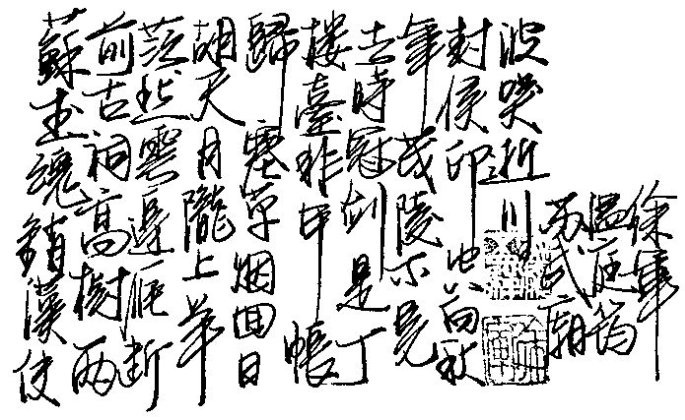 蘇武魂銷漢使
前古祠高樹兩
茫然雲邊雁断
胡天月隴上羊
歸塞草烟回日
楼臺非甲帳
去時冠剑是丁
年茂陵不見
封侯印空向秋
波哭逝川
苏武廟
温庭筠
徐軍